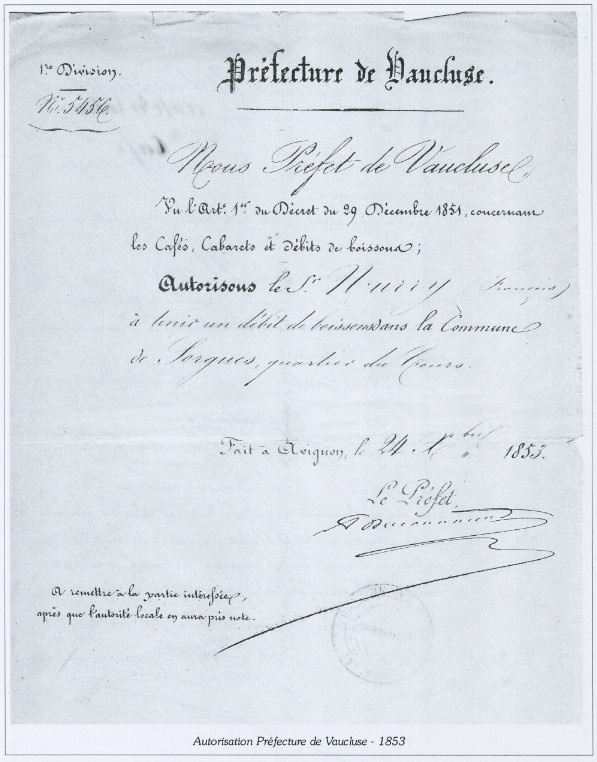 1re Division.
No. 5456.
Préfecture de Vaucluse.
Nous Préfet de Vaucluse,
Vu l'Art. 1er du Décret du 29 Décembre 1851, concernant
les Cafés, Cabarets et débits de boissons;
Autorisons le Sr (François)
à tenir un débit de boissons dans la Commune
de Sorgues, quartier du Cours.
Fait à Avignon, le 24 Xbre 1853.
Le Préfet,
A remettre à la partie intéressée,
après que l'autorité locale en aura pris note.
Autorisation Préfecture de Vaucluse - 1853